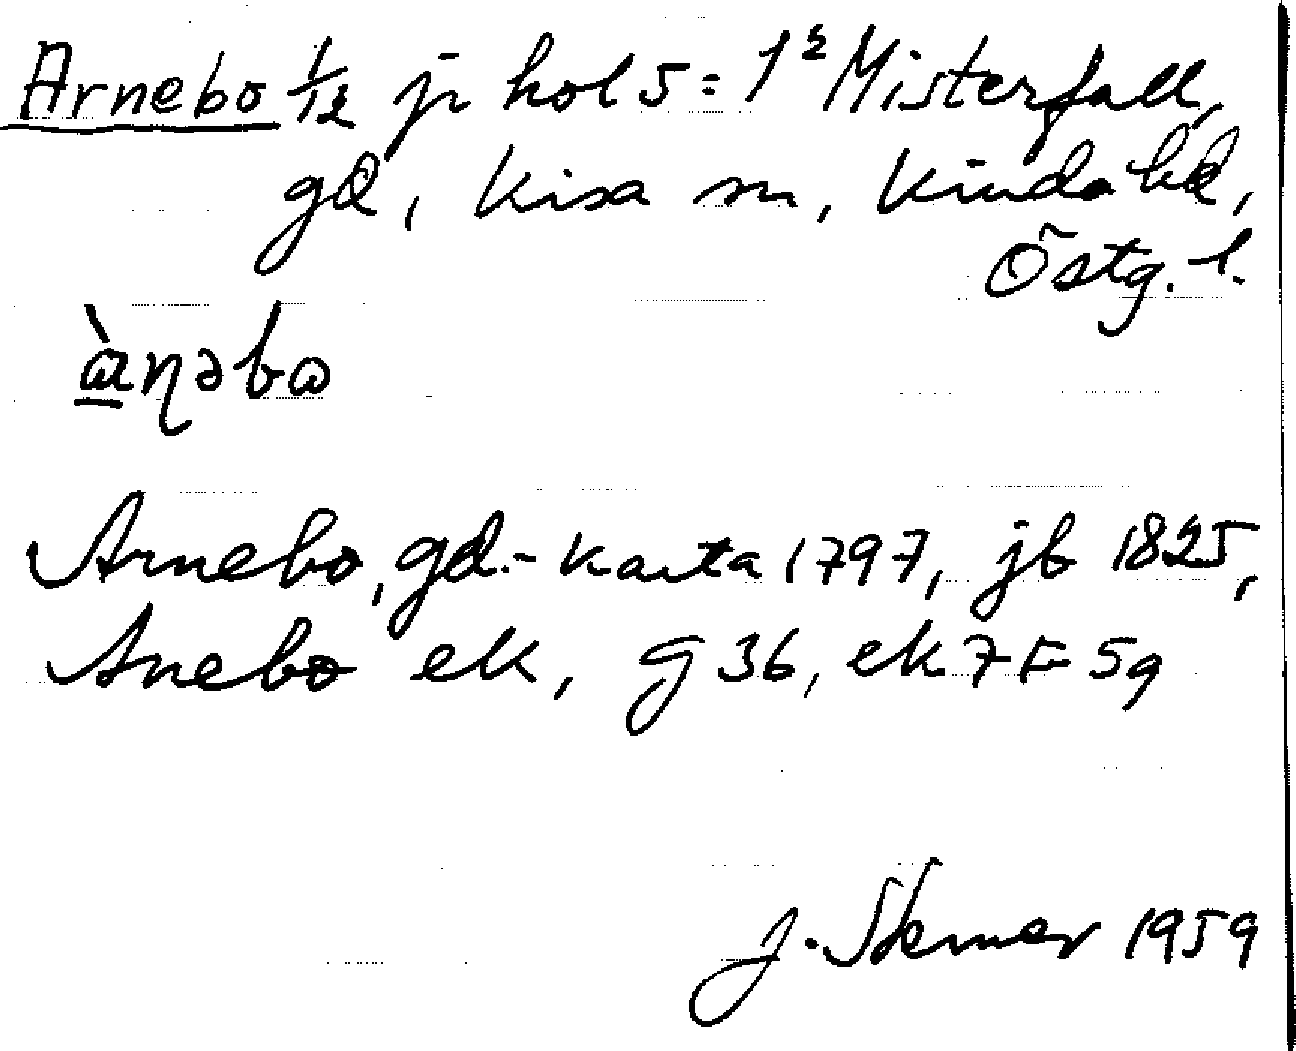 Arnebo 1/12 jr hol 5 = 1² Misterfall,
gd, Kisa sn, Kinda hd,
Östg. l.
ὰṇəbɷ
Arnebo, gd.-karta 1797, jb 1825,
Anebo ek, g 36, ek 7 F 5g
J. Stemer 1959